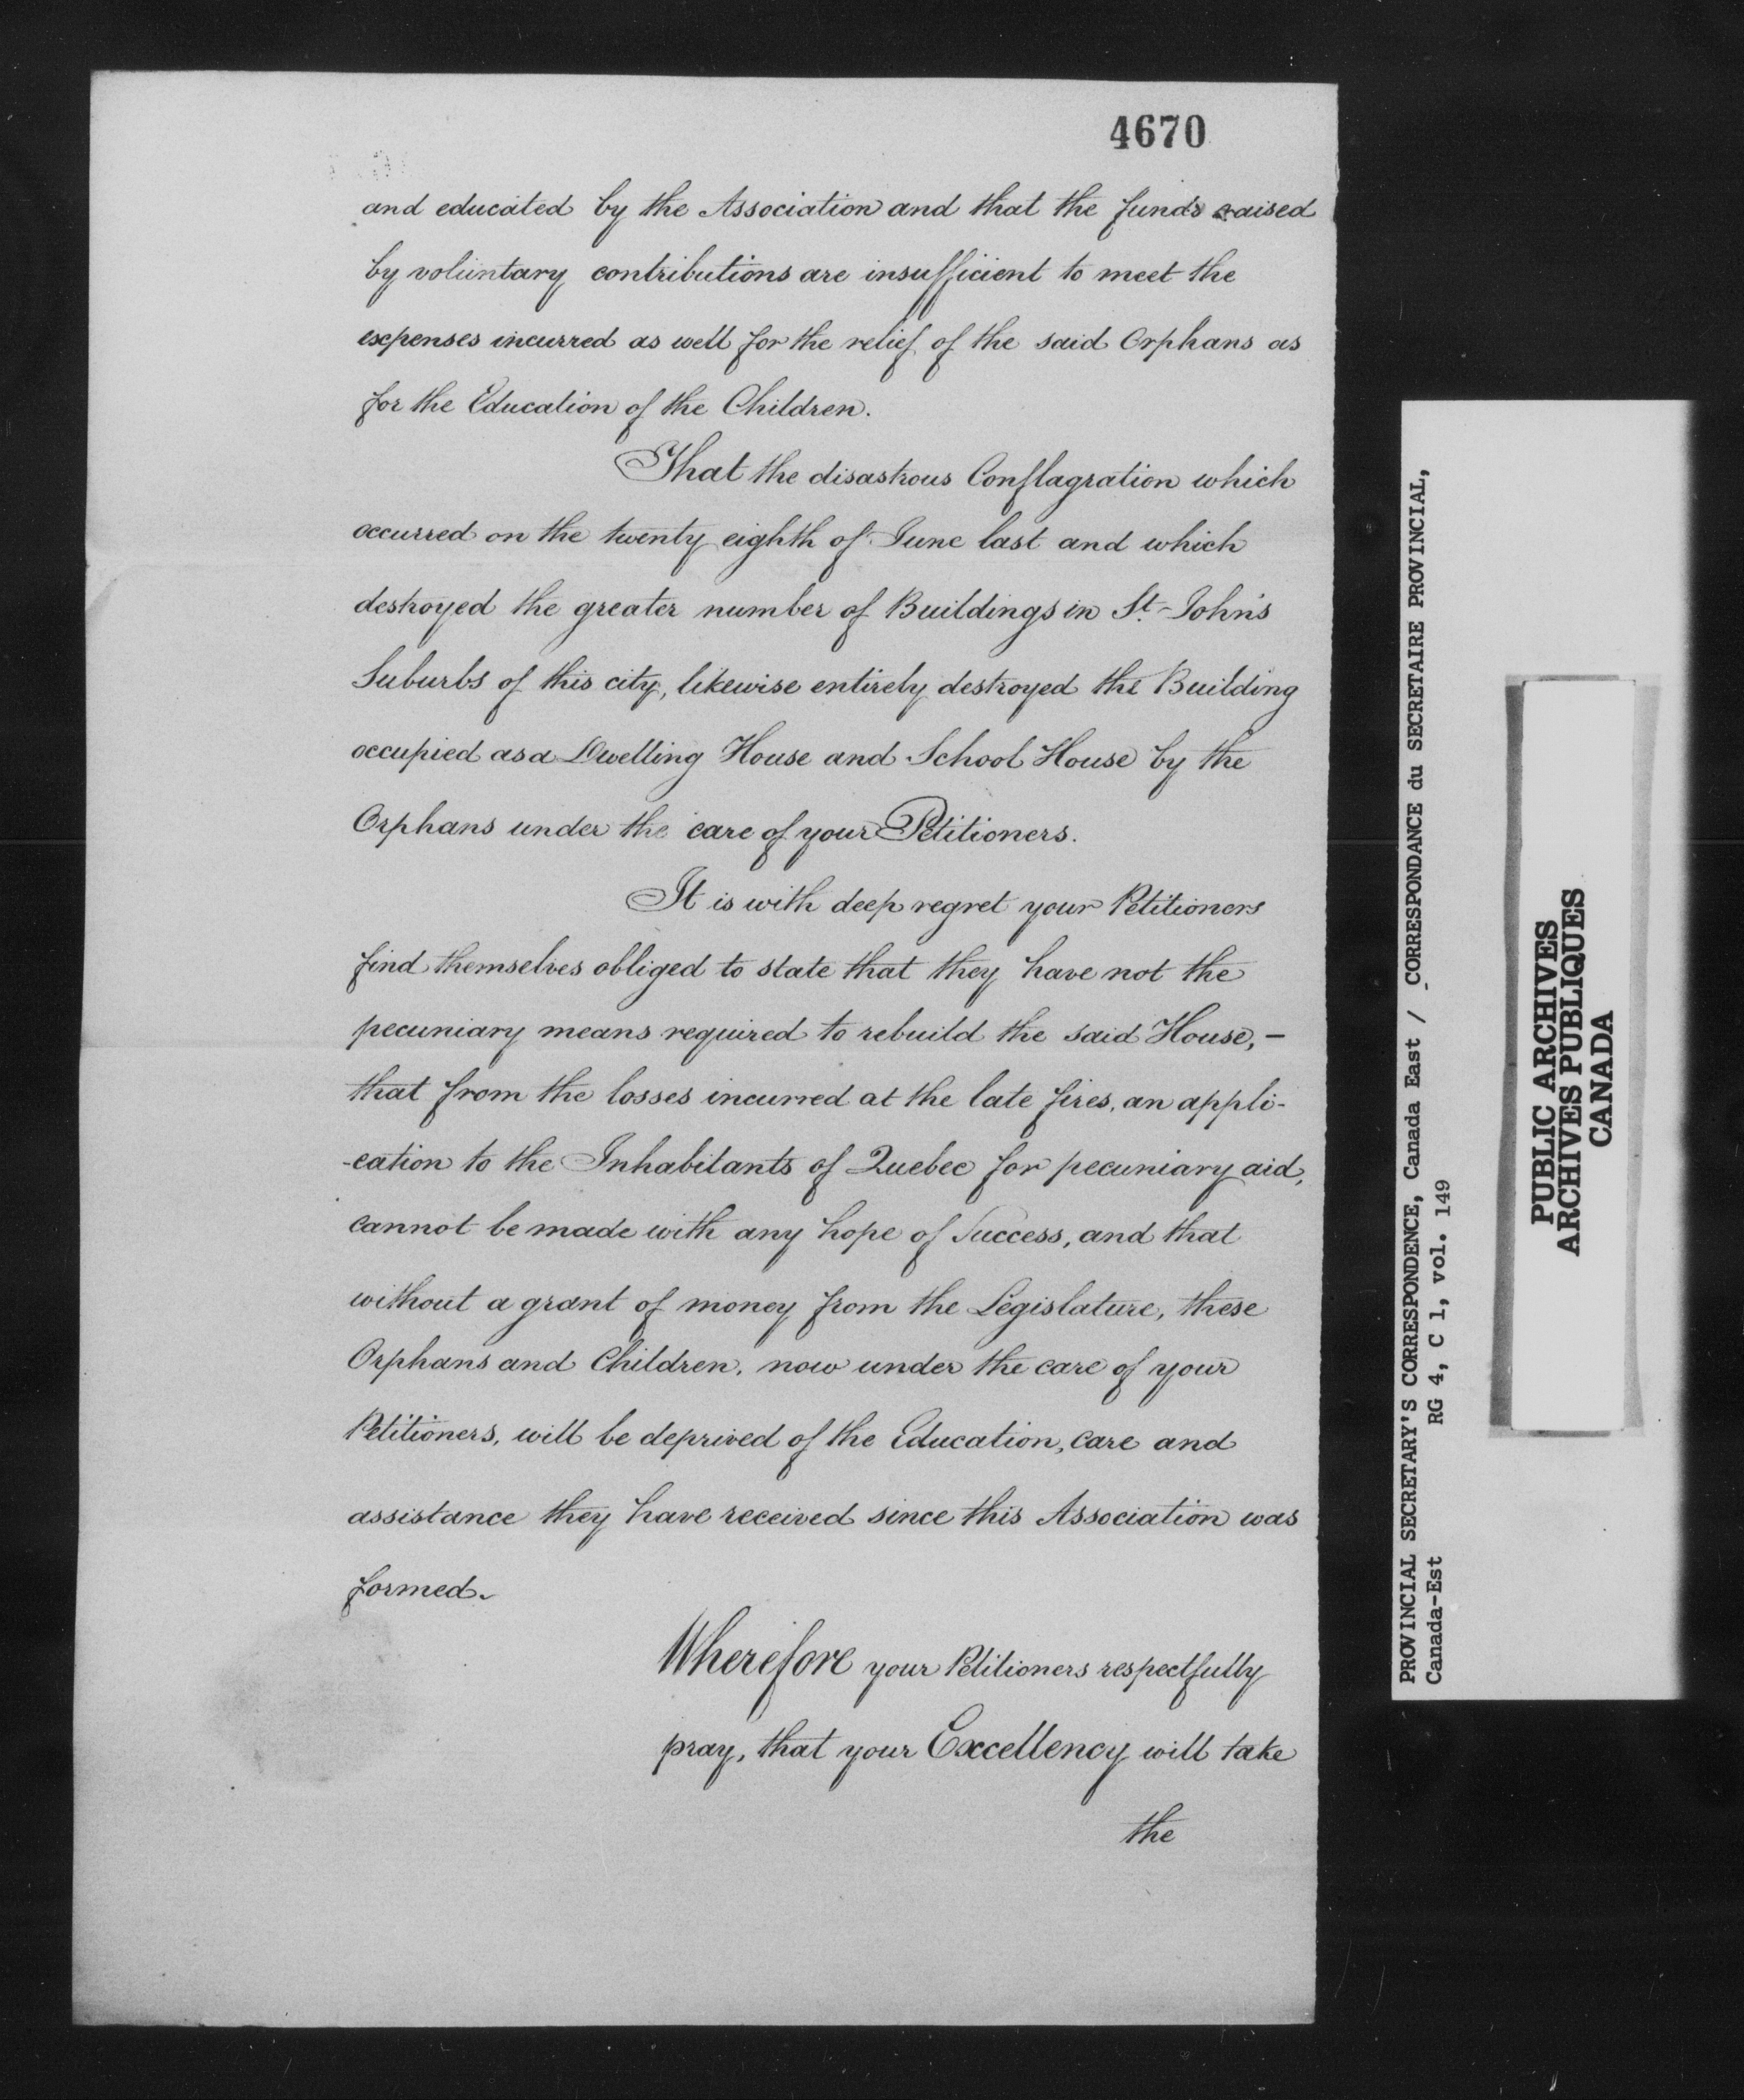 4670
and educated by the Association and that the funds raised
by voluntary contributions are insufficient to meet the
expenses incurred as well for the relief of the said Orphans as
for the Education of the Children.
That the disastrous Conflagration which
occurred on the twenty eighth of June last and which
destroyed the greater number of Buildings in St. John's
Suburbs of this city, likewise entirely destroyed the Building
occupied as a Dwelling House and School House by the
Orphans under the care of your Petitioners.
It is with deep regret your Petitioners
find themselves obliged to state that they have not the
pecuniary means required to rebuild the said House, –
that from the losses incurred at the late fires, an appli-
-cation to the Inhabitants of Quebec for pecuniary aid,
cannot be made with any hope of Success, and that
without a grant of money from the Legislature, these
Orphans and Children, now under the care of your
Petitioners, will be deprived of the Education, care and
assistance they have received since this Association was
formed.
Wherefore your Petitioners respectfully
pray, that your Excellency will take
the
PROVINCIAL SECRETARY'S CORRESPONDENCE, Canada East / CORRESPONDANCE du SECRETAIRE PROVINCIAL,
Canada-Est RG 4, C 1, vol. 149
PUBLIC ARCHIVES
ARCHIVES PUBLIQUES
CANADA